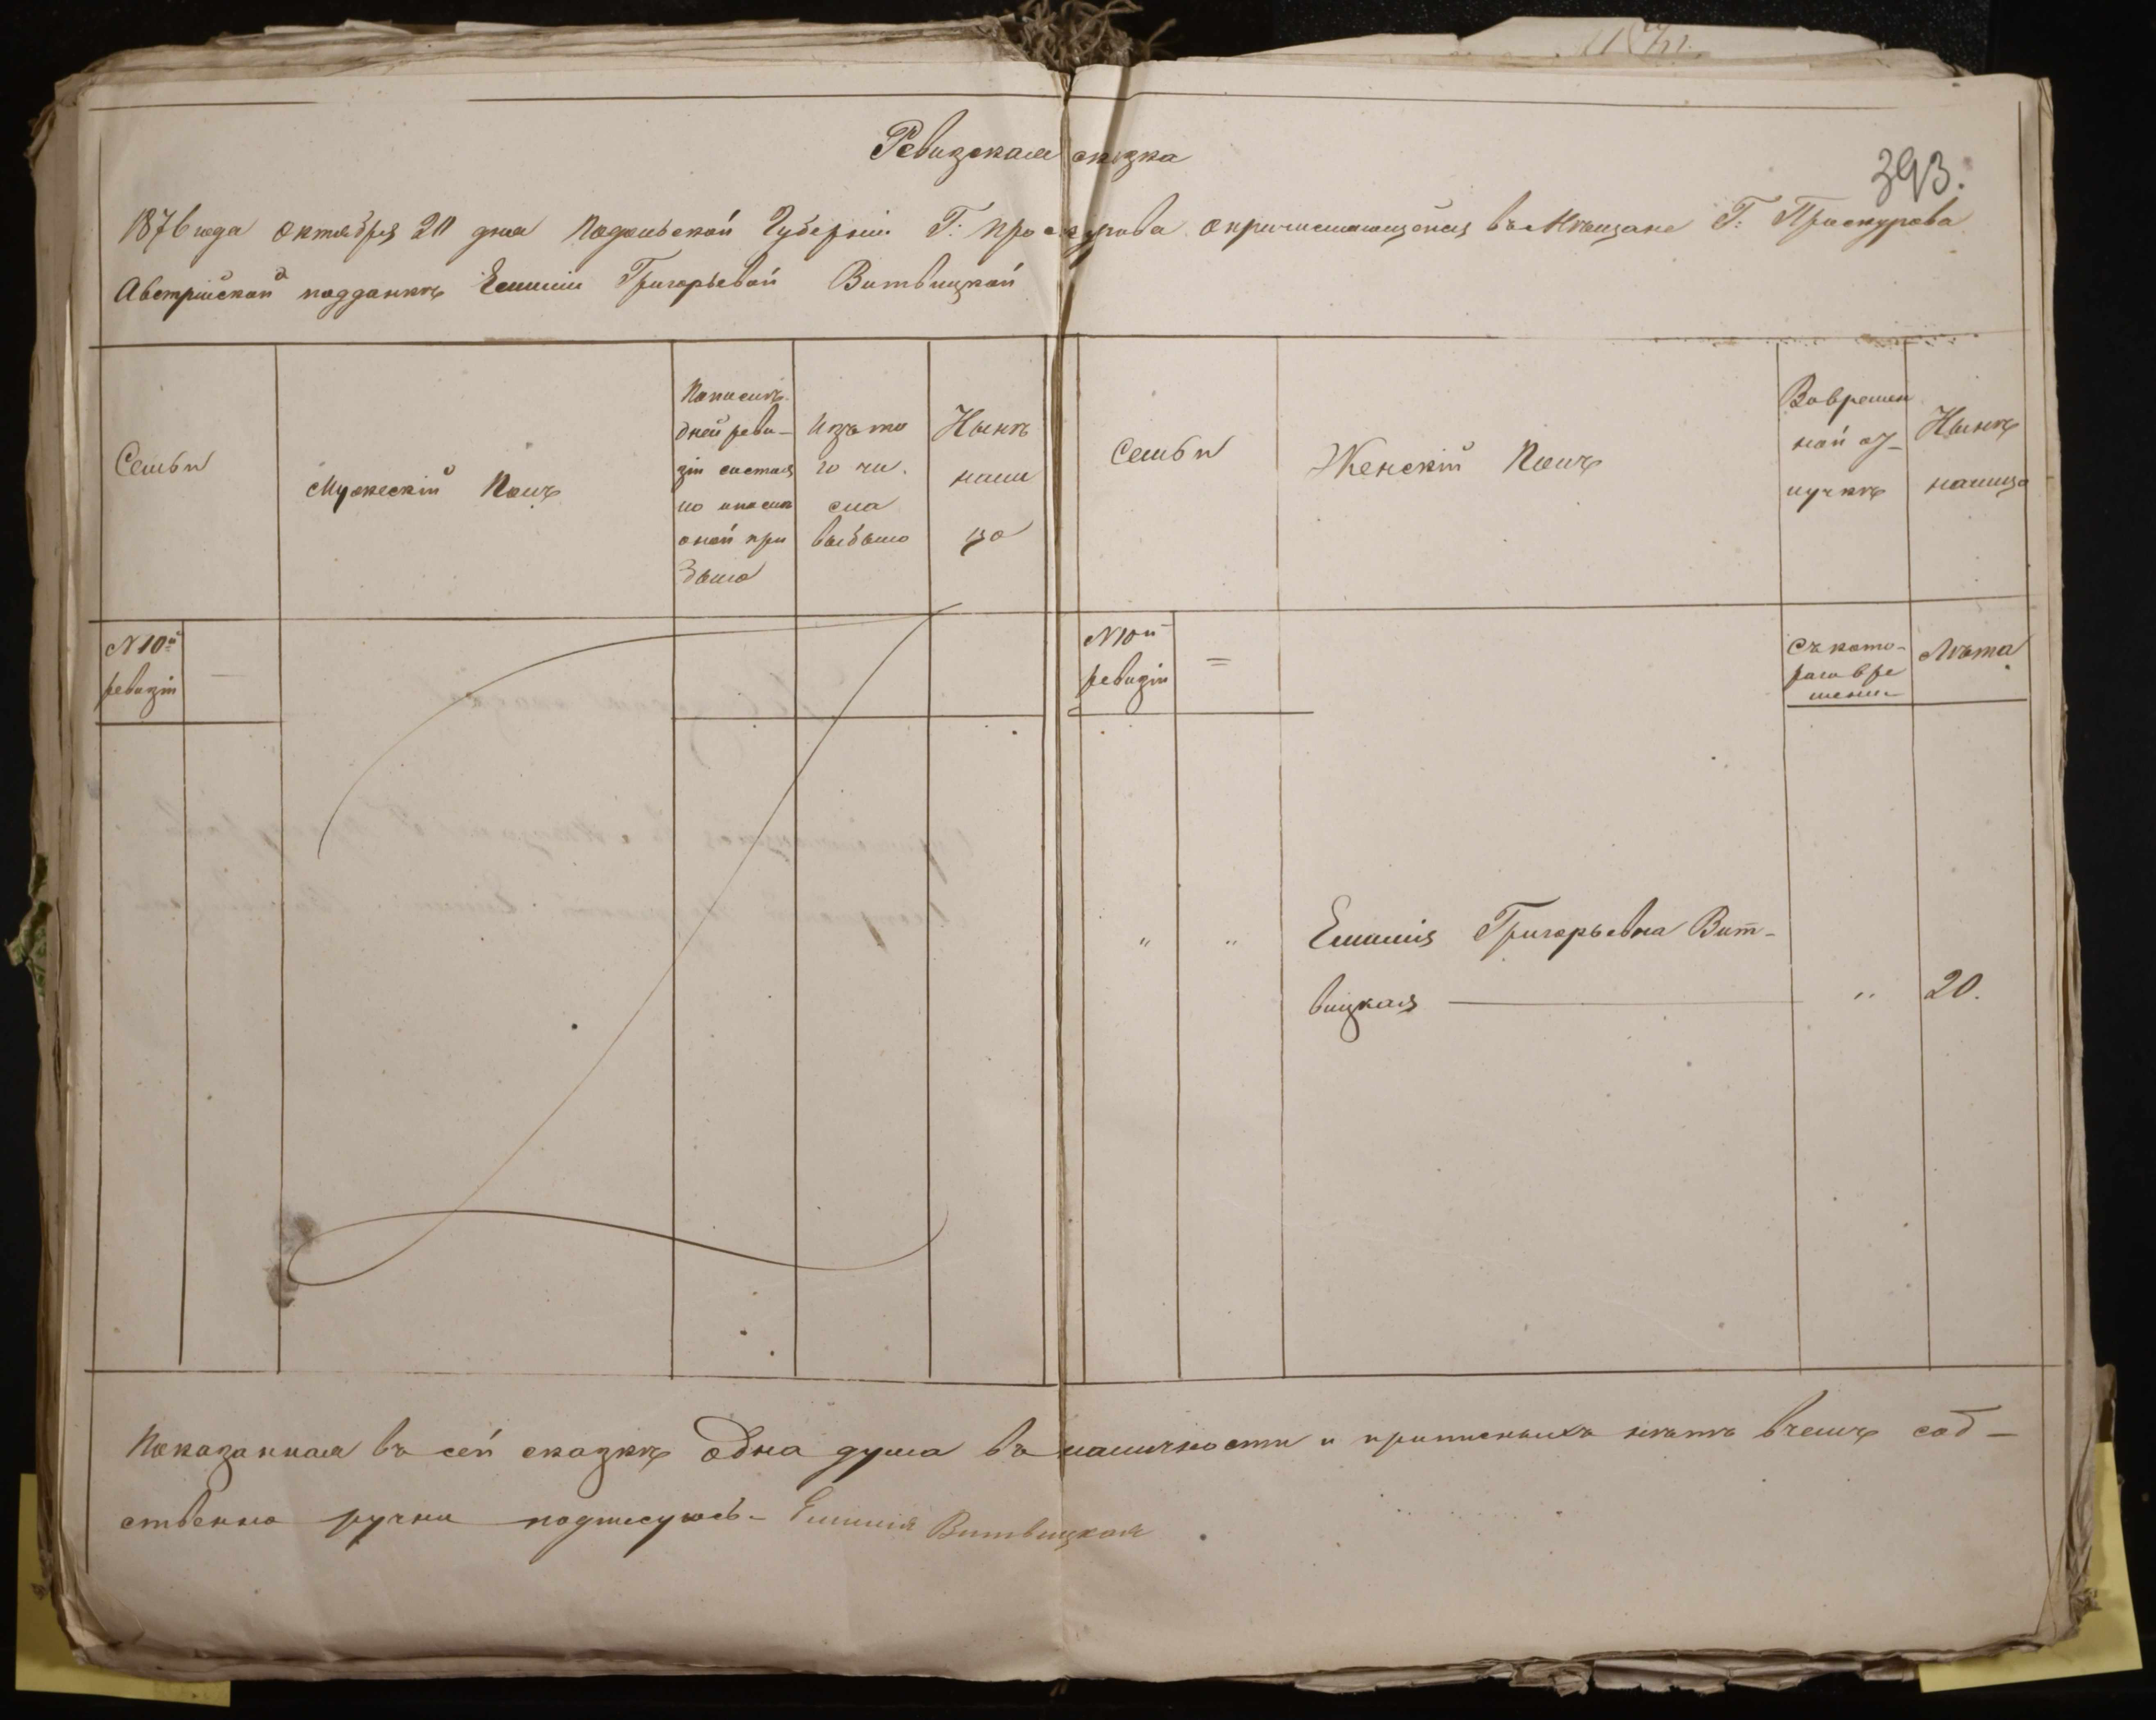 Ревизская сказка
393.
1876 года Октября 20 дня Подольской Губерніи Г: Проскурова о причисляющейся въ Мѣщане Г: Проскурова
Австрійской подданкѣ Емиліи Григорьевой Витвицкой
Семьи
Мужескій Полъ
По послѣ
дней реви-
зіи состоя
ло и послѣ
оной при
было
Изъ то
го чи.
сла
выбыло
Нынѣ
нали
цо
Семьи
Женскій Полъ
Во времен
ной от
лучкѣ
Нынѣ
налицо
N 10й
ревизіи
—
N 10й
ревизіи
=
Съ кото-
раго вре
мени
Лѣта
" " Емилія Григорьевна Вит-
вицкая — " 20.
Показанная въ сей сказкѣ одна душа въ наличности и прописныхъ нѣтъ в чемъ соб-
ственно ручни подписуюсь- Емилія Витвицкая